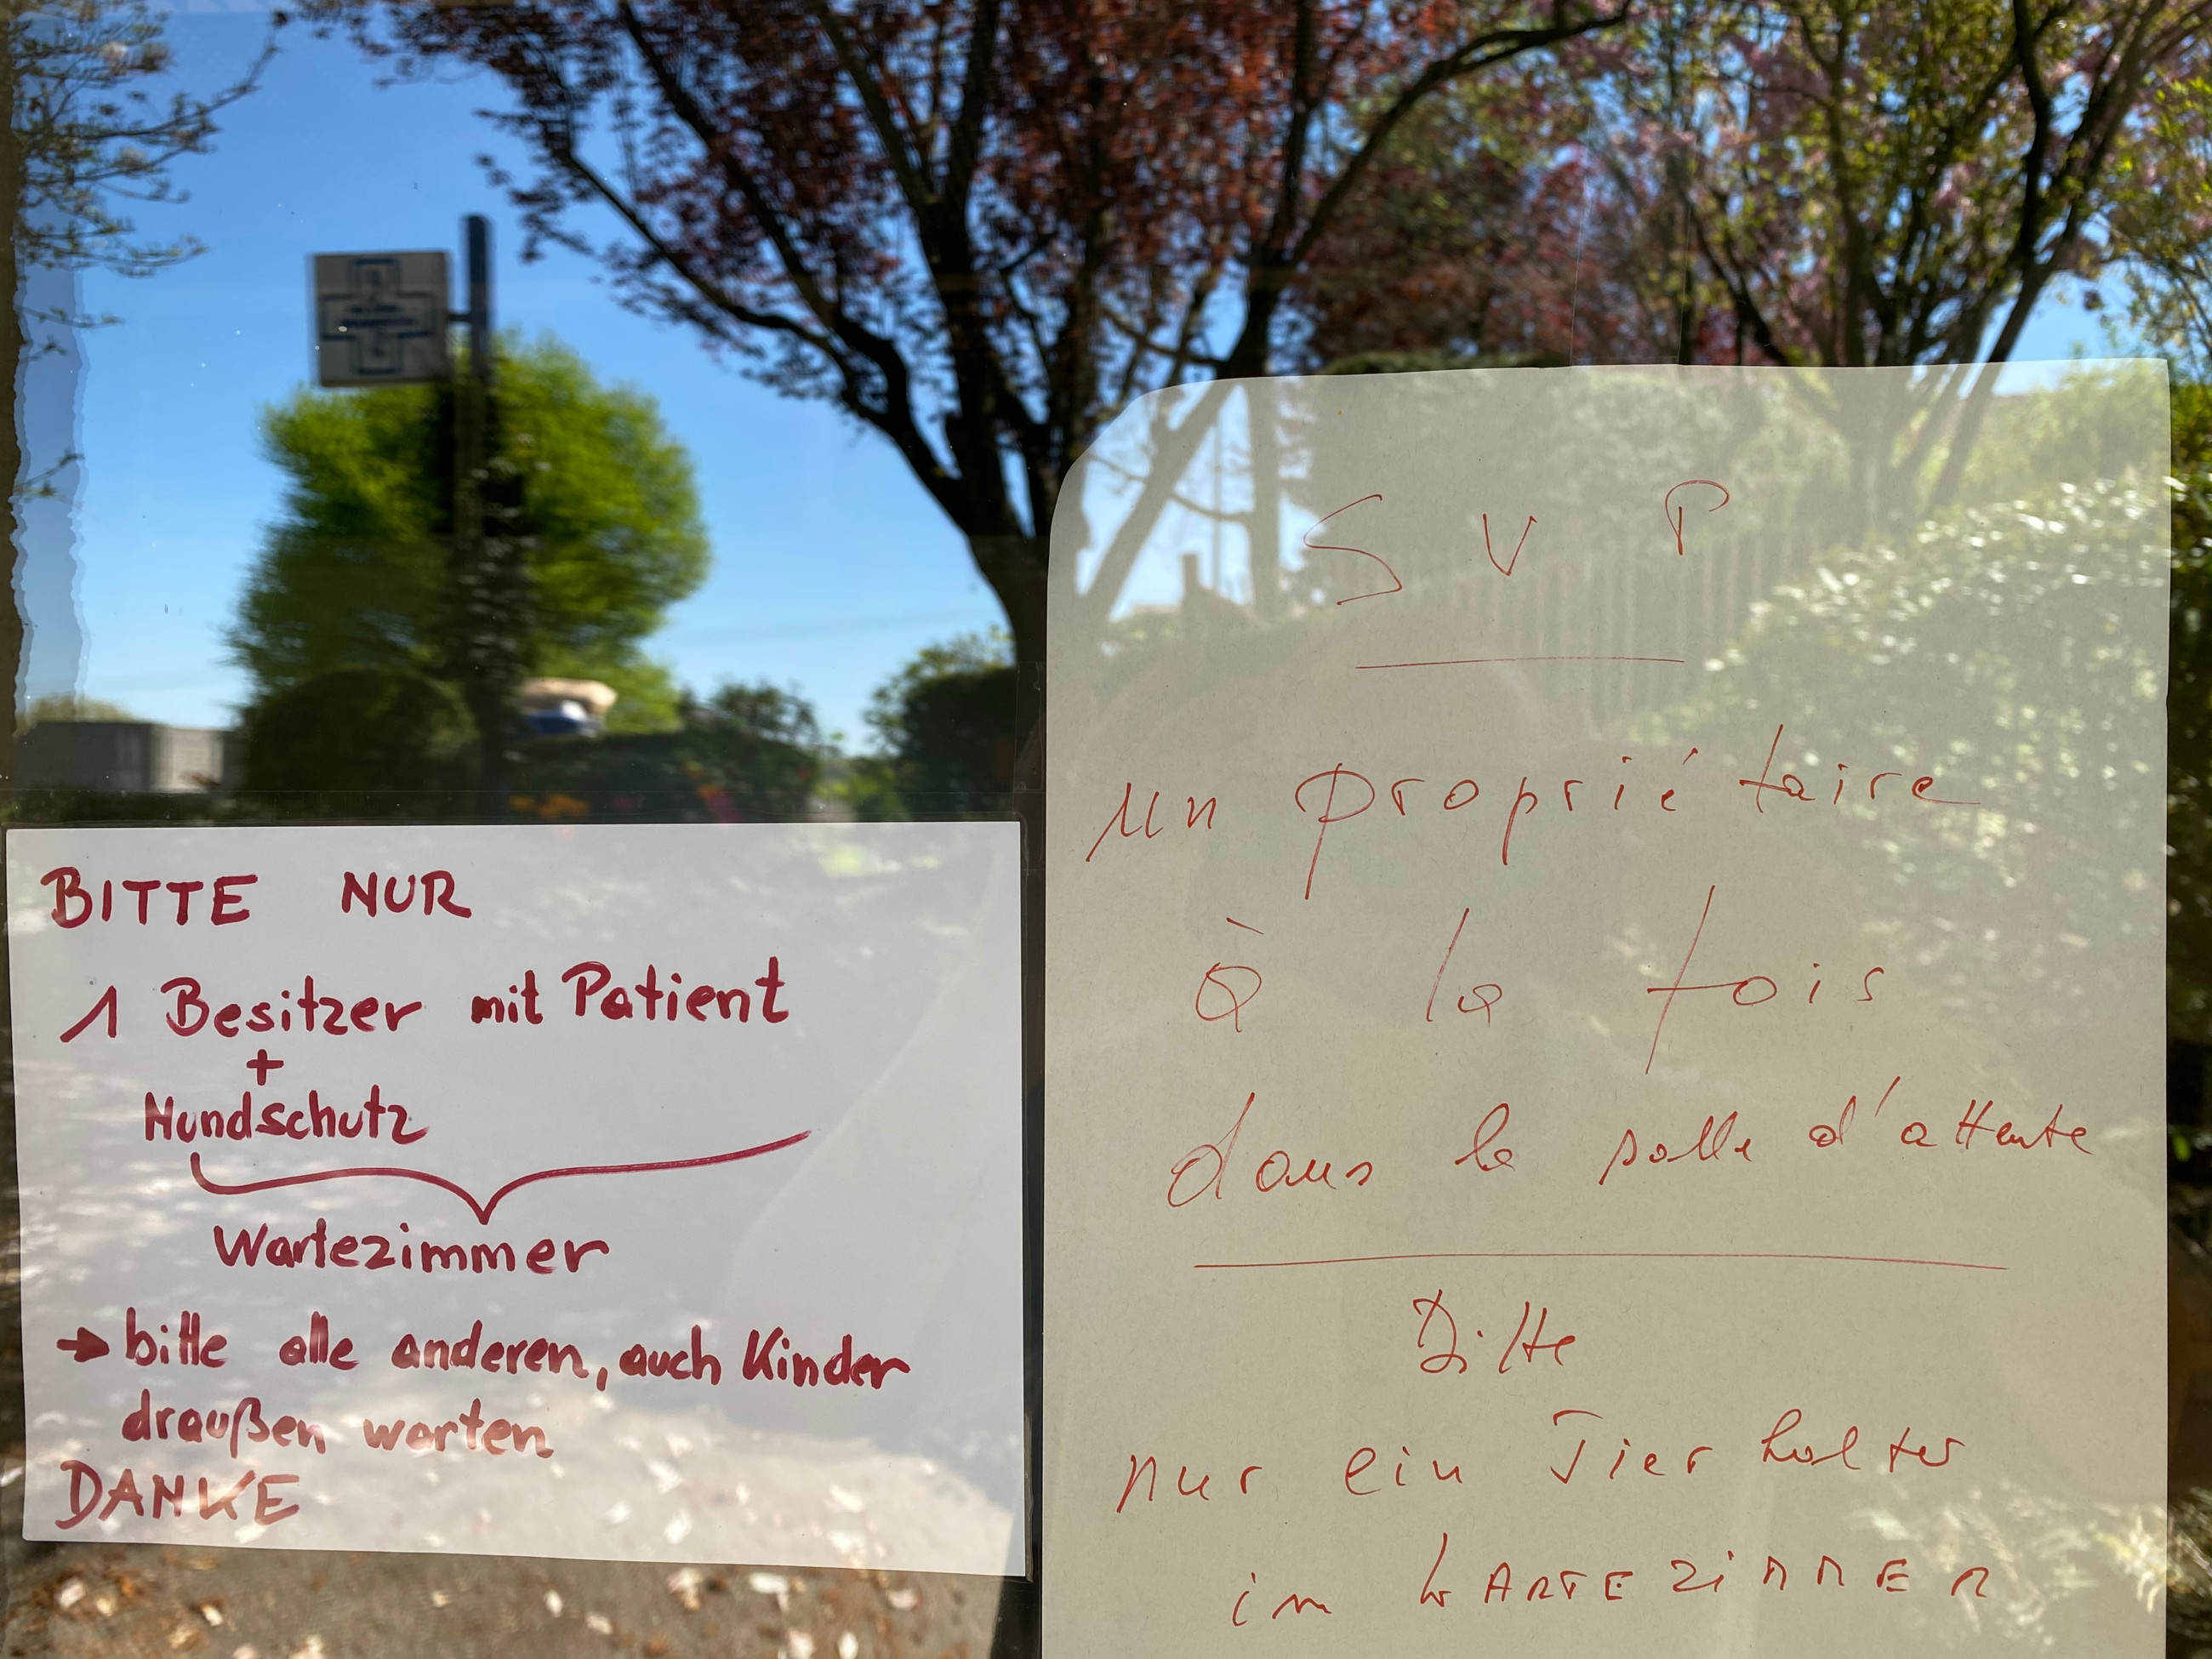 BITTE NUR
1 Besitzer mit Patient
+
Mundschutz
Wartezimmer
→ bitte alle anderen, auch Kinder
draußen warten
DANKE
S V P
un propriétaire
à la fois
dans la salle d'attente
Bitte
nur ein Tierhalter
im WARTEZIMMER